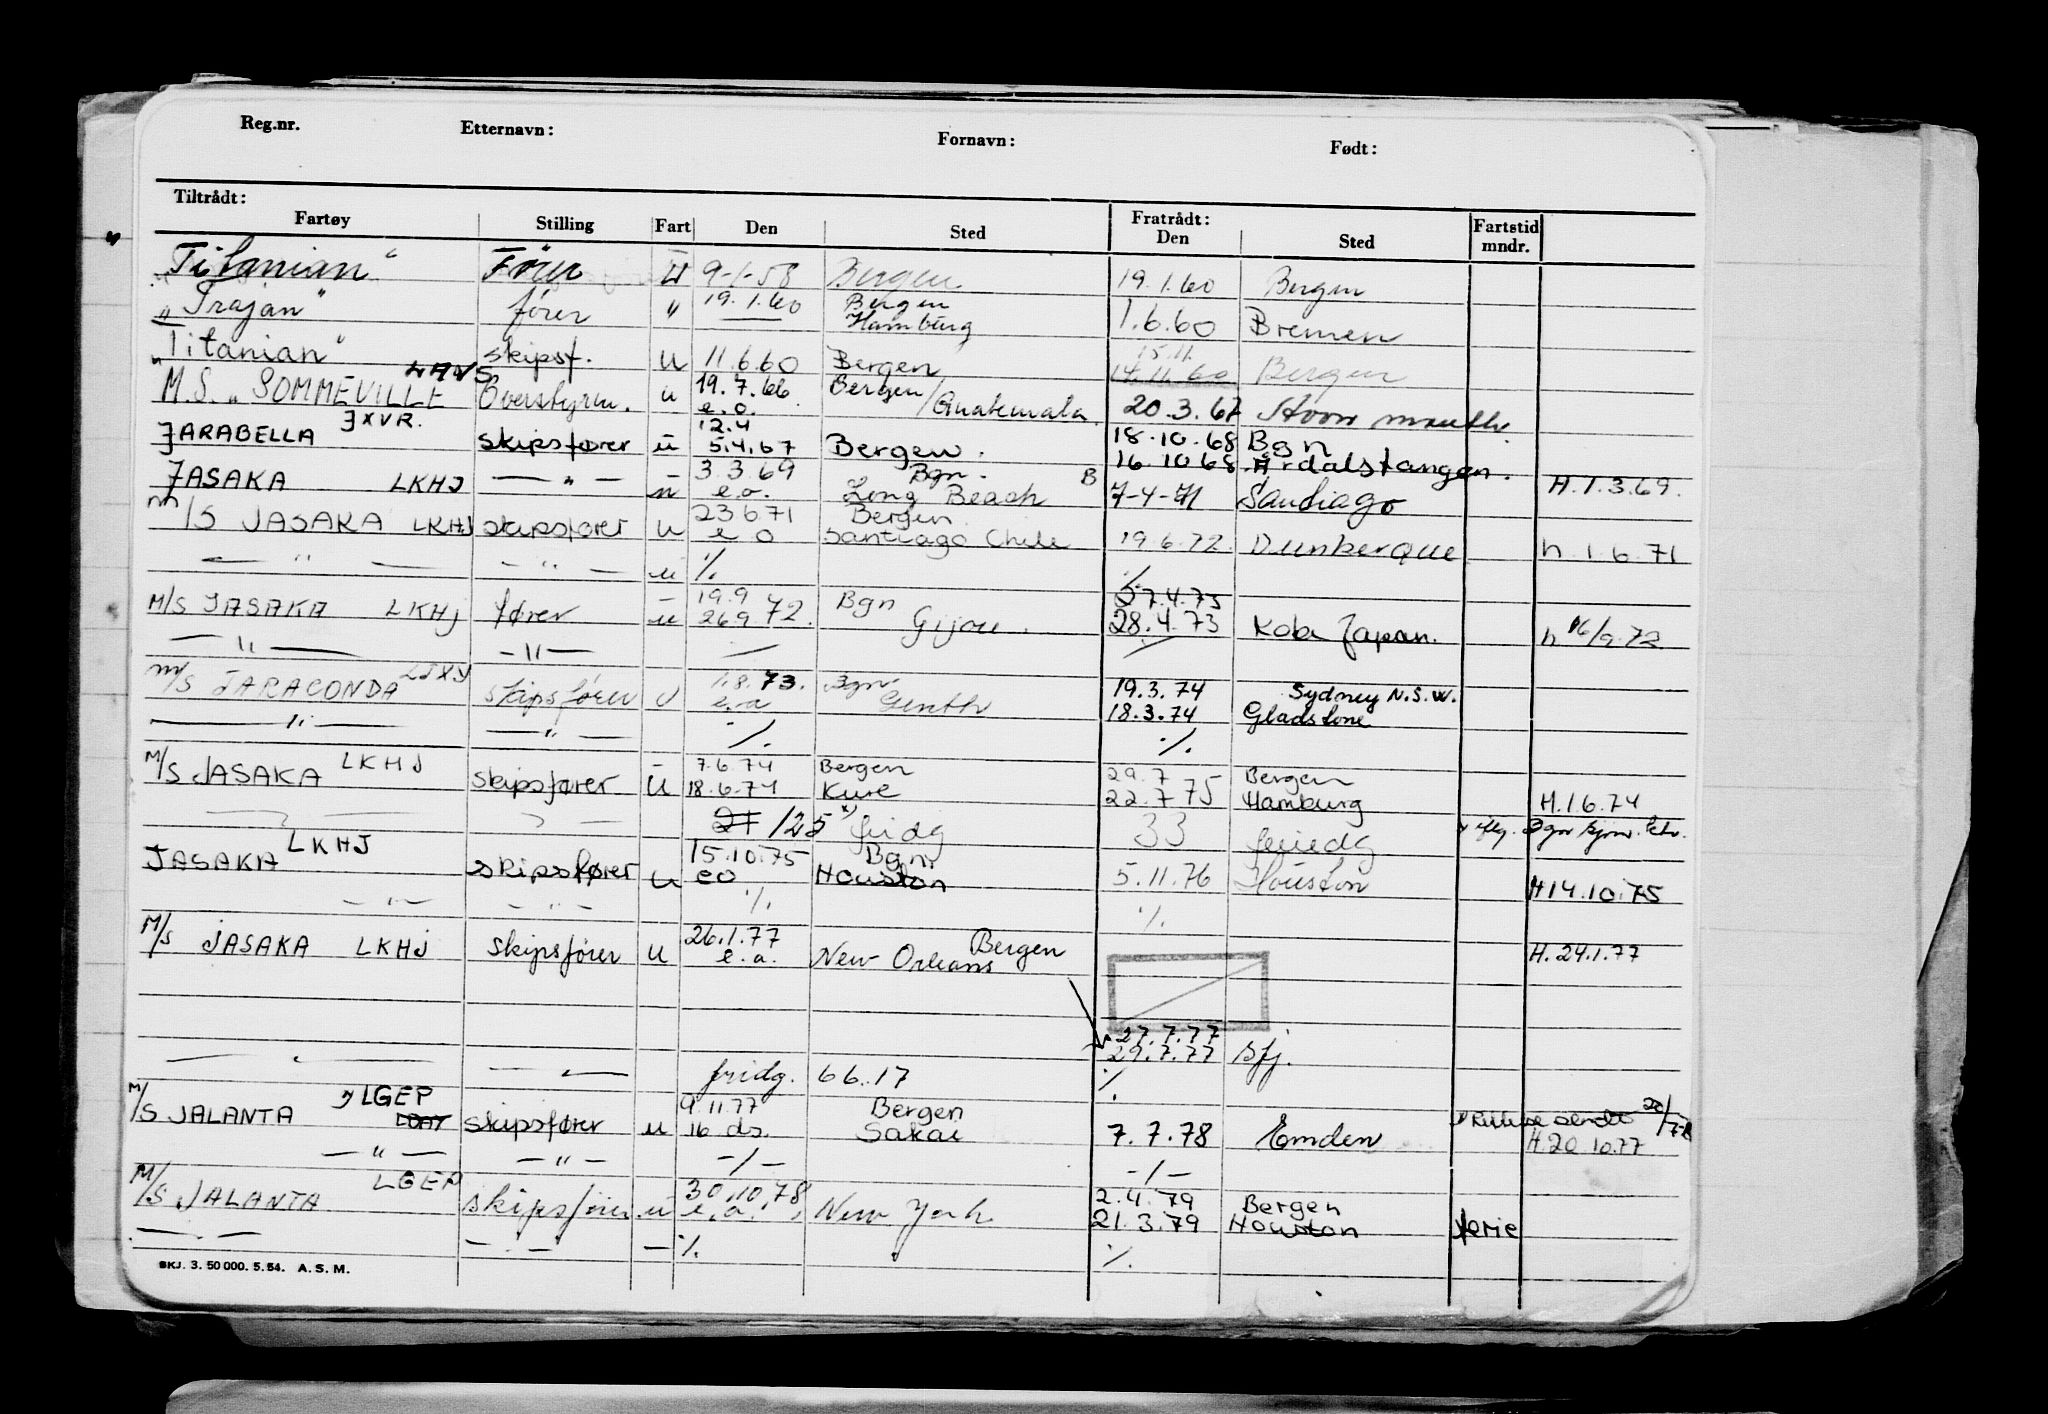 Reg.nr. Etternavn: Fornavn: Født:
Tiltrådt: Fratrådt:
Fartøy Stilling Fart Den Sted Den Sted Fartstid mndr.
"Titanian" Fører U 9-1-58 Bergen 19.1.60 Bergen
"Trajan" fører " 19.1.60 Bergen Hamburg 1.6.60 Bremen
"Titanian" skipsf. u 11.6.60 Bergen 15.11. 14.11.60 Bergen
M.S. "SOMMEVILLE Overstyrm. u 19.7.66 e.o. Bergen/Guatemala 20.3.67
JARABELLA JXVR. skipsfører u 12.4 5.4.67 Bergen. 18.10.68 Bgn 16.10.68 Årdalstangen.
JASAKA LKHJ — " — u 3.3.69 e.o. Bgn. Long Beach B 7-4-71 Santiago H.1.3.69.
M/S JASAKA LKHJ skipsfører u 23.6.71 e o Bergen Santiago Chile 19.6.72. Dunkerque h.1.6.71
— " — — " — u ./. ./.
M/S JASAKA LKHJ fører u 19.9 26.9.72. Bgn Gijon. 27.4.73 28.4.73 Kobe Japan. h 16/9.72
— " — — " —
M/S JARACONDA LJXY skipsfører U 1.8.73. e.o Bgn. Genth 19.3.74 Sydney N.S.W. 18.3.74 Gladstone
— " — — " — ./. ./.
M/S JASAKA LKHJ skipsfører U 7.6.74 18.6.74 Bergen Kure 29.7 22.7.75 Bergen Hamburg H.1.6.74
— " — — " — 21/25 x) fridg 33 feriedg
JASAKA LKHJ skipsfører u 15.10.75 eo Bgn. Houston 5.11.76 Houston H14.10.75
— " — — " — ./. ./.
M/S JASAKA LKHJ skipsfører u 26.1.77 e.o. Bergen New Orleans H.24.1.77
27.7.77
29.7.77 Sfj.
— " — — " — fridg. 66.17 ./.
M/S JALANTA LGEP skipsfører u 9.11.77 16 ds. Bergen Sakai 7.7.78 Emden H.20.10.77
— " — — " — -/- -/-
M/S JALANTA LGEP skipsfører u 30.10.78, e.o. New York 2.4.79 Bergen 21.3.79 Houston ferie
— " — — " — — ./. ./.
SKJ. 3. 50 000. 5.54. A.S.M.